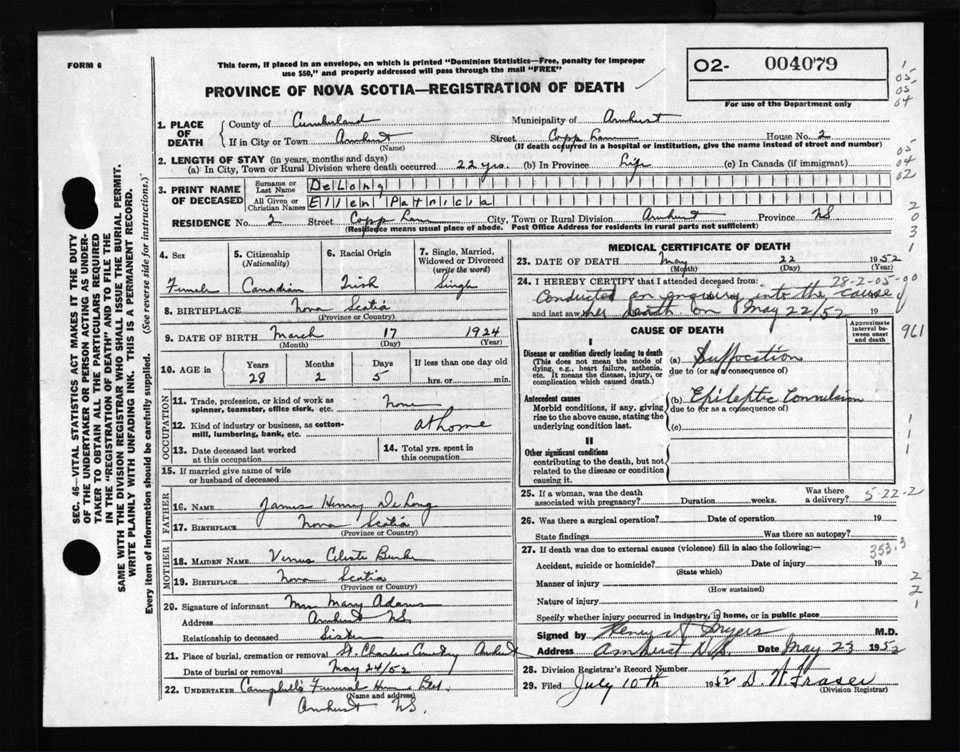 FORM 6
This form, if placed in an envelope, on which is printed "Dominion Statistics—Free, penalty for improper
use $50," and properly addressed will pass through the mail "FREE"
O2- 004079
For use of the Department only
PROVINCE OF NOVA SCOTIA—REGISTRATION OF DEATH
SEC. 46—VITAL STATISTICS ACT MAKES IT THE DUTY
OF THE UNDERTAKER OR PERSON ACTING AS UNDER-
TAKER TO OBTAIN ALL THE PARTICULARS REQUIRED
IN THE "REGISTRATION OF DEATH" AND TO FILE THE
SAME WITH THE DIVISION REGISTRAR WHO SHALL ISSUE THE BURIAL PERMIT.
WRITE PLAINLY WITH UNFADING INK. THIS IS A PERMANENT RECORD.
Every item of information should be carefully supplied. (See reverse side for instructions.)
1. PLACE OF DEATH
County of Cumberland Municipality of Amherst
If in City or Town Amherst Street Copp Lane House No. 2
(Name) (If death occurred in a hospital or institution, give the name instead of street and number)
2. LENGTH OF STAY (in years, months and days)
(a) In City, Town or Rural Division where death occurred 22 yrs. (b) In Province Life (c) In Canada (if immigrant)
3. PRINT NAME OF DECEASED
Surname or Last Name DeLong
All Given or Christian Names Ellen Patricia
RESIDENCE No. 2 Street Copp Lane City, Town or Rural Division Amherst Province NS
(Residence means usual place of abode. Post Office Address for residents in rural parts not sufficient)
4. Sex Female
5. Citizenship (Nationality) Canadian
6. Racial Origin Irish
7. Single, Married, Widowed or Divorced (write the word) Single
8. BIRTHPLACE Nova Scotia
(Province or Country)
9. DATE OF BIRTH March 17 1924
(Month) (Day) (Year)
10. AGE in Years Months Days If less than one day old
28 2 5 hrs. or min.
OCCUPATION
11. Trade, profession, or kind of work as spinner, teamster, office clerk, etc. None
12. Kind of industry or business, as cotton-mill, lumbering, bank, etc. at home
13. Date deceased last worked at this occupation
14. Total yrs. spent in this occupation
15. If married give name of wife or husband of deceased
FATHER
16. NAME James Henry DeLong
17. BIRTHPLACE Nova Scotia
(Province or Country)
MOTHER
18. MAIDEN NAME
19. BIRTHPLACE Nova Scotia
(Province or Country)
20. Signature of informant Mrs Mary Adams
Address Amherst NS.
Relationship to deceased Sister
21. Place of burial, cremation or removal St. Charles Amherst
Date of burial or removal May 24/52
22. UNDERTAKER Campbell's Funeral
(Name and address)
Amherst NS.
MEDICAL CERTIFICATE OF DEATH
23. DATE OF DEATH May 22 1952
(Month) (Day) (Year)
24. I HEREBY CERTIFY that I attended deceased from: 28-2-05-00
Conducted an inquiry into the cause of
and last saw her death on May 22/52 19
CAUSE OF DEATH
Approximate interval between onset and death
I
Disease or condition directly leading to death (a) Suffocation
(This does not mean the mode of dying, e.g., heart failure, asthenia, etc. It means the disease, injury, or complication which caused death.)
due to (or as a consequence of)
Antecedent causes (b) Epileptic Convulsion
Morbid conditions, if any, giving rise to the above cause, stating the underlying condition last.
due to (or as a consequence of)
(c)
II
Other significant conditions
contributing to the death, but not related to the disease or condition causing it.
25. If a woman, was the death associated with pregnancy? Duration weeks. Was there a delivery? 5-22-2
26. Was there a surgical operation? Date of operation 19
State findings Was there an autopsy?
27. If death was due to external causes (violence) fill in also the following:— 353.3
Accident, suicide or homicide? Date of injury 19
(State which)
Manner of injury
(How sustained)
Nature of injury
Specify whether injury occurred in industry, in home, or in public place
Signed by M.D.
Address Amherst N.S. Date May 23 1952
28. Division Registrar's Record Number
29. Filed July 10th 1952 D. W. Fraser
(Division Registrar)
1
05
05
04
05
04
02
2
0
3
1
961
1
1
1
2
2
1